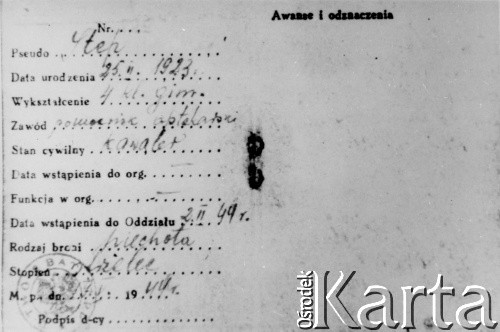 Awanse i odznaczenia
Nr.
Pseudo Step
Data urodzenia 25.II.1923.
Wykształcenie 4 kl. gim.
Zawód pomocnik aptekarski
Stan cywilny kawaler
Data wstąpienia do org. —
Funkcja w org. —
Data wstąpienia do Oddziału 2.II.44 r.
Rodzaj broni piechota
Stopień strzelec
M. p. dn. 19 44 r.
Podpis d-cy
Ośrodek Karta